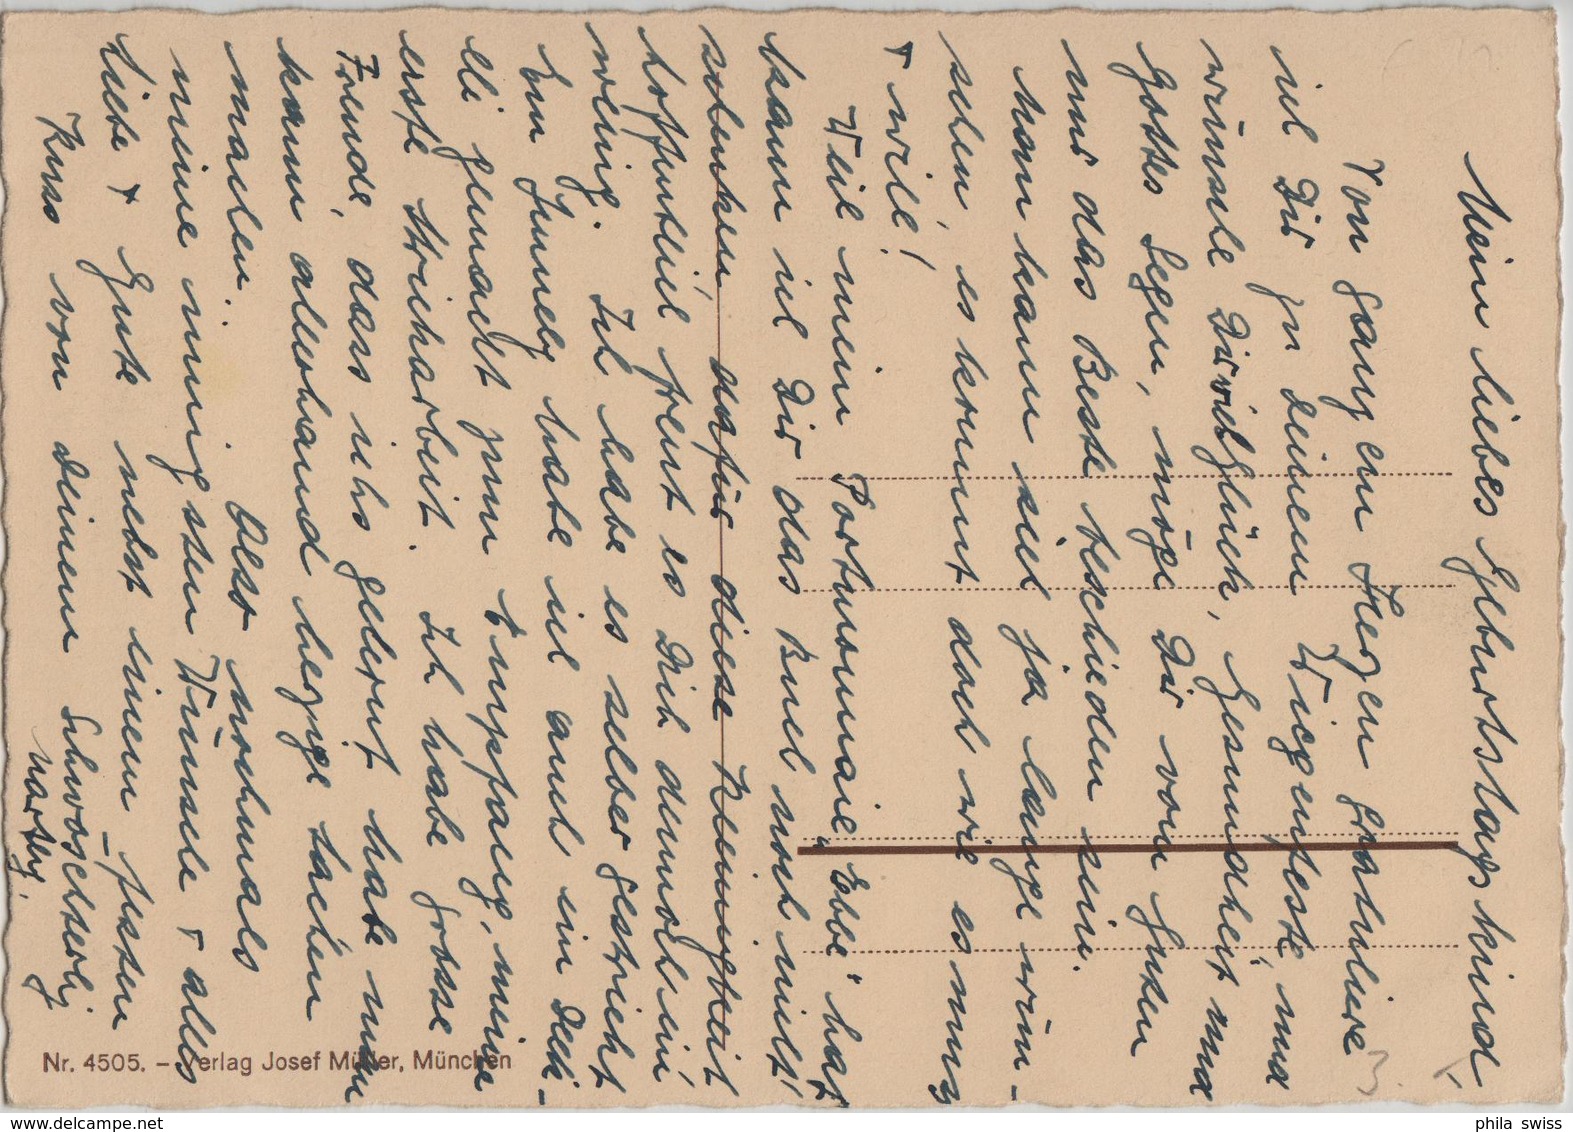 Mein liebes Geburtstagskind
Von ganzem Herzen gratuliere
ich Dir zu deinem Wiegenfeste, und
wünsche Dir viel Glück, Gesundheit und
Gottes Segen, möge Dir vom Guten
nur das Beste beschieden sein.
Man kann sich ja lange wün-
schen, es kommt doch wie es muss
+ will!
Weil mein Portmonnaie "Ebbe" hat
kann ich Dir das Buch noch nicht
schenken, dafür diese Kleinigkeit
hoffentlich freut es Dich dennoch ein
wenig. Ich habe es selber gestrickt
beim habe ich auch ein Deck-
eli gemacht zum Empfang, meine
erste Strickarbeit. Ich habe grosse
Freude, dass ichs gelernt habe man
kann allerhand herzige Sachen
machen. Also nochmals
meine innigsten Wünsche + alles
Liebe + Gute nebst einem festen
Kuss von deinem

Nr. 4505. – Verlag Josef Müller, München
phila swiss